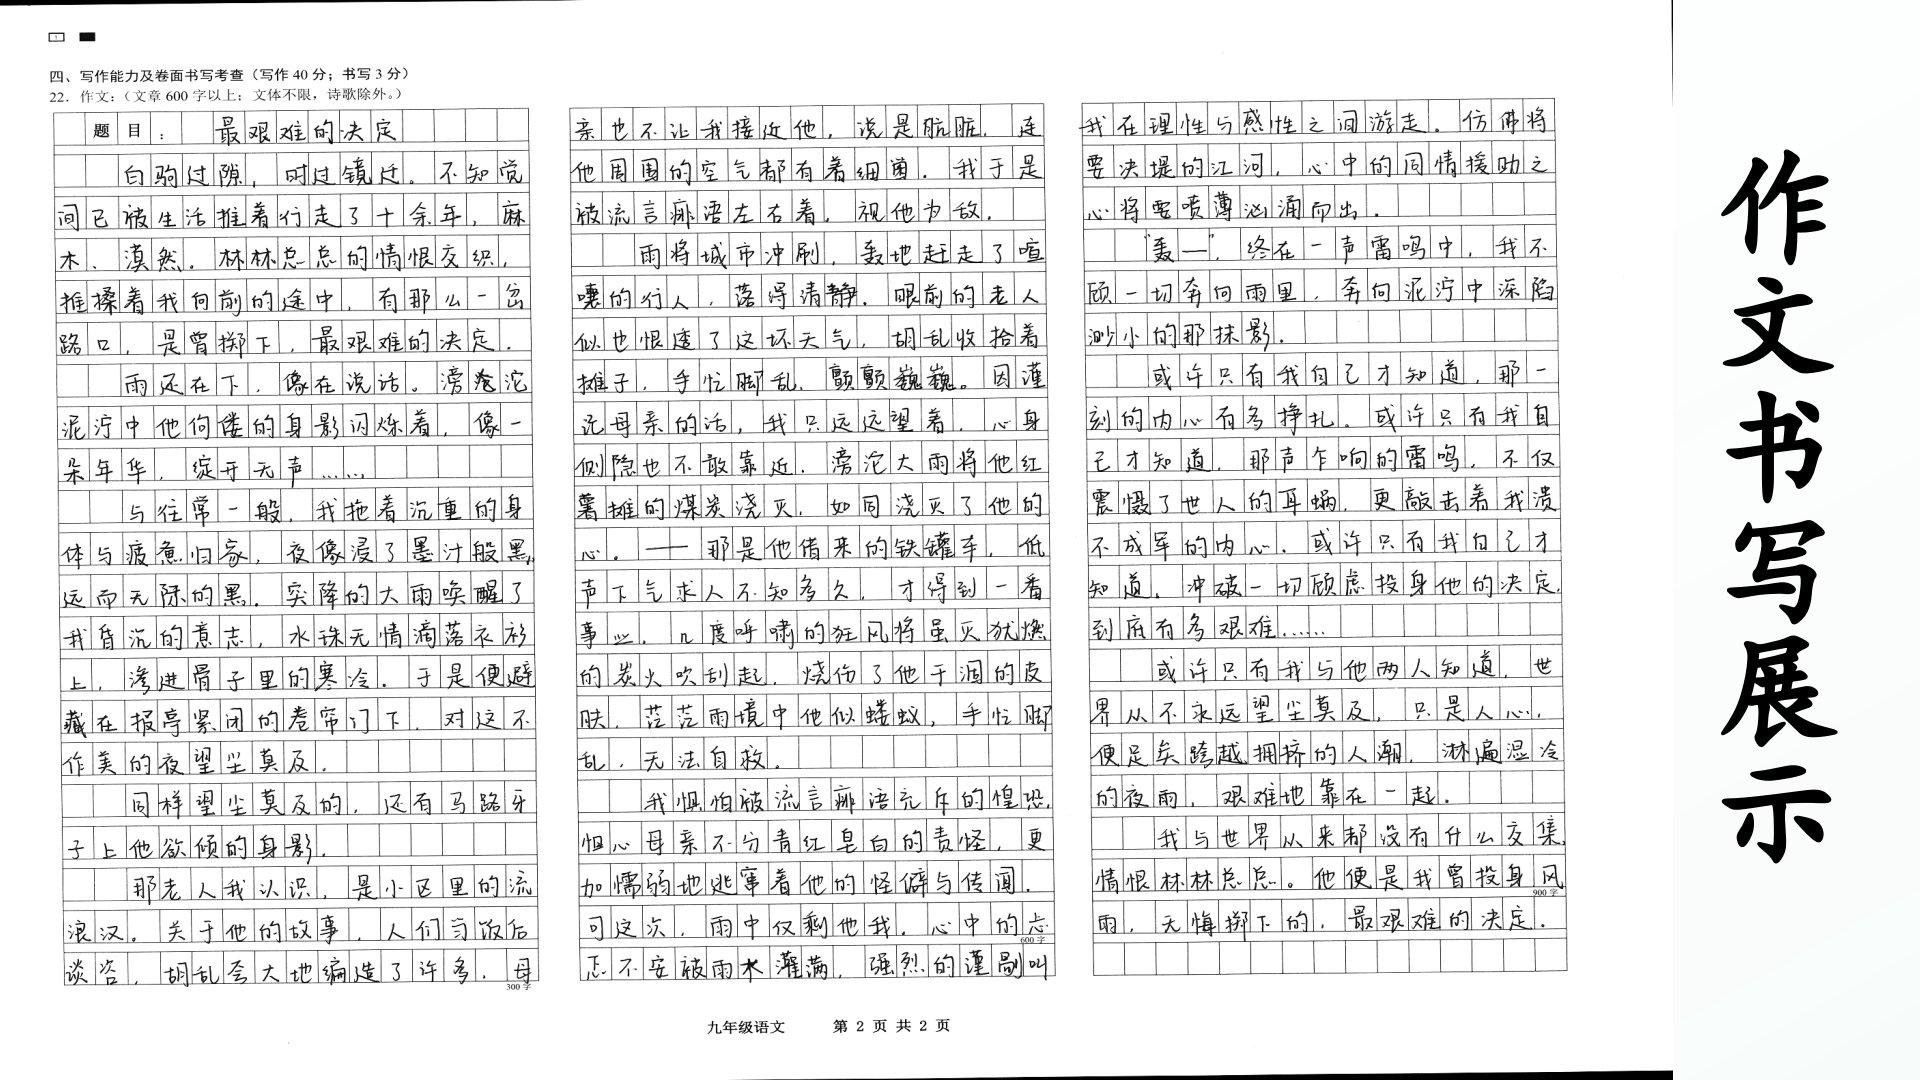 四、写作能力及卷面书写考查（写作 40 分；书写 3 分）
22．作文：（文章 600 字以上；文体不限，诗歌除外。）
题目：最艰难的决定
白驹过隙，时过镜迁。不知觉
间已被生活推着行走了十余年，麻
木、漠然。林林总总的情恨交织，
推搡着我向前的途中，有那么一岔
路口，是曾掷下，最艰难的决定．
雨还在下．像在说话。滂沱
泥泞中他佝偻的身影闪烁着，像一
朵年华，绽开无声……
与往常一般，我拖着沉重的身
体与疲惫归家，夜像浸了墨汁般黑，
远而无际的黑．突降的大雨唤醒了
我昏沉的意志，水珠无情滴落衣衫
上，渗进骨子里的寒冷．于是便避
藏在报亭紧闭的卷帘门下．对这不
作美的夜望尘莫及．
同样望尘莫及的，还有马路牙
子上他欲倾的身影．
那老人我认识，是小区里的流
浪汉。关于他的故事，人们与饭后
谈咨，胡乱夸大地编造了许多．母
300 字
亲也不让我接近他，说是肮脏．连
他周围的空气都有着细菌．我于是
被流言痱语左右着，视他为敌．
雨将城市冲刷，轰地赶走了喧
嚷的行人，落得清静．眼前的老人
似也恨透了这坏天气，胡乱收拾着
摊子，手忙脚乱．颤颤巍巍。因谨
记母亲的话，我只远远望着．心身
侧隐也不敢靠近．滂沱大雨将他红
薯摊的煤炭浇灭．如同浇灭了他的
心。——那是他借来的铁罐车，低
声下气求人不知多久，才得到一番
事业．几度呼啸的狂风将虽灭犹燃
的炭火吹刮起．烧伤了他干涸的皮
肤．茫茫雨境中他似蝼蚁，手忙脚
乱．无法自救．
我惧怕被流言痱语充斥的惶恐，
怛心母亲不分青红皂白的责怪，更
加懦弱地逃窜着他的怪僻与传闻．
可这次，雨中仅剩他我．心中的忐
600 字
忑不安被雨水灌满．强烈的谨剐叫
我在理性与感性之间游走．仿佛将
要决堤的江河，心中的同情援助之
心将要喷薄汹涌而出．
“轰—”．终在一声雷鸣中，我不
顾一切奔向雨里，奔向泥泞中深陷
渺小的那抹影．
或许只有我自己才知道，那一
刻的内心有多挣扎。或许只有我自
己才知道．那声乍响的雷鸣，不仅
震慑了世人的耳蜗．更敲击着我溃
不成军的内心．或许只有我自己才
知道．冲破一切顾虑投身他的决定，
到底有多艰难……
或许只有我与他两人知道，世
界从不永远望尘莫及，只是人心，
便足矣跨越拥挤的人潮．淋遍湿冷
的夜雨，艰难地靠在一起．
我与世界从来都没有什么交集，
情恨林林总总。他便是我曾投身风
900 字
雨，无悔掷下的，最艰难的决定．
九年级语文 第 2 页 共 2 页
作文书写展示